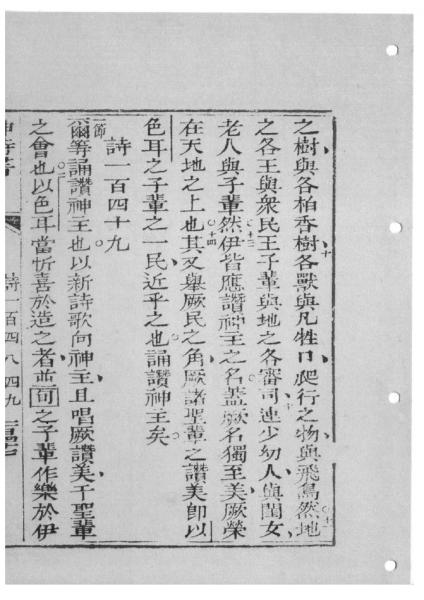 之樹與各柏香樹各獸與凡牲口爬行之物與飛鳥然地
之各王與衆民王子輩與地之各審司連少幼人與閨女
老人與子輩然伊皆應讚神主之名蓋厥名獨至美厥榮
在天地之上也其又舉厥民之角厥諸聖輩之讚美卽以
色耳之子輩之一民近乎之也誦讚神主矣
詩一百四十九
一節爾等誦讚神主也以新詩歌向神主且唱厥讚美于聖輩
之會也以色耳當忻喜於造之者並㘝之子輩作樂於伊
詩一百四八 四九